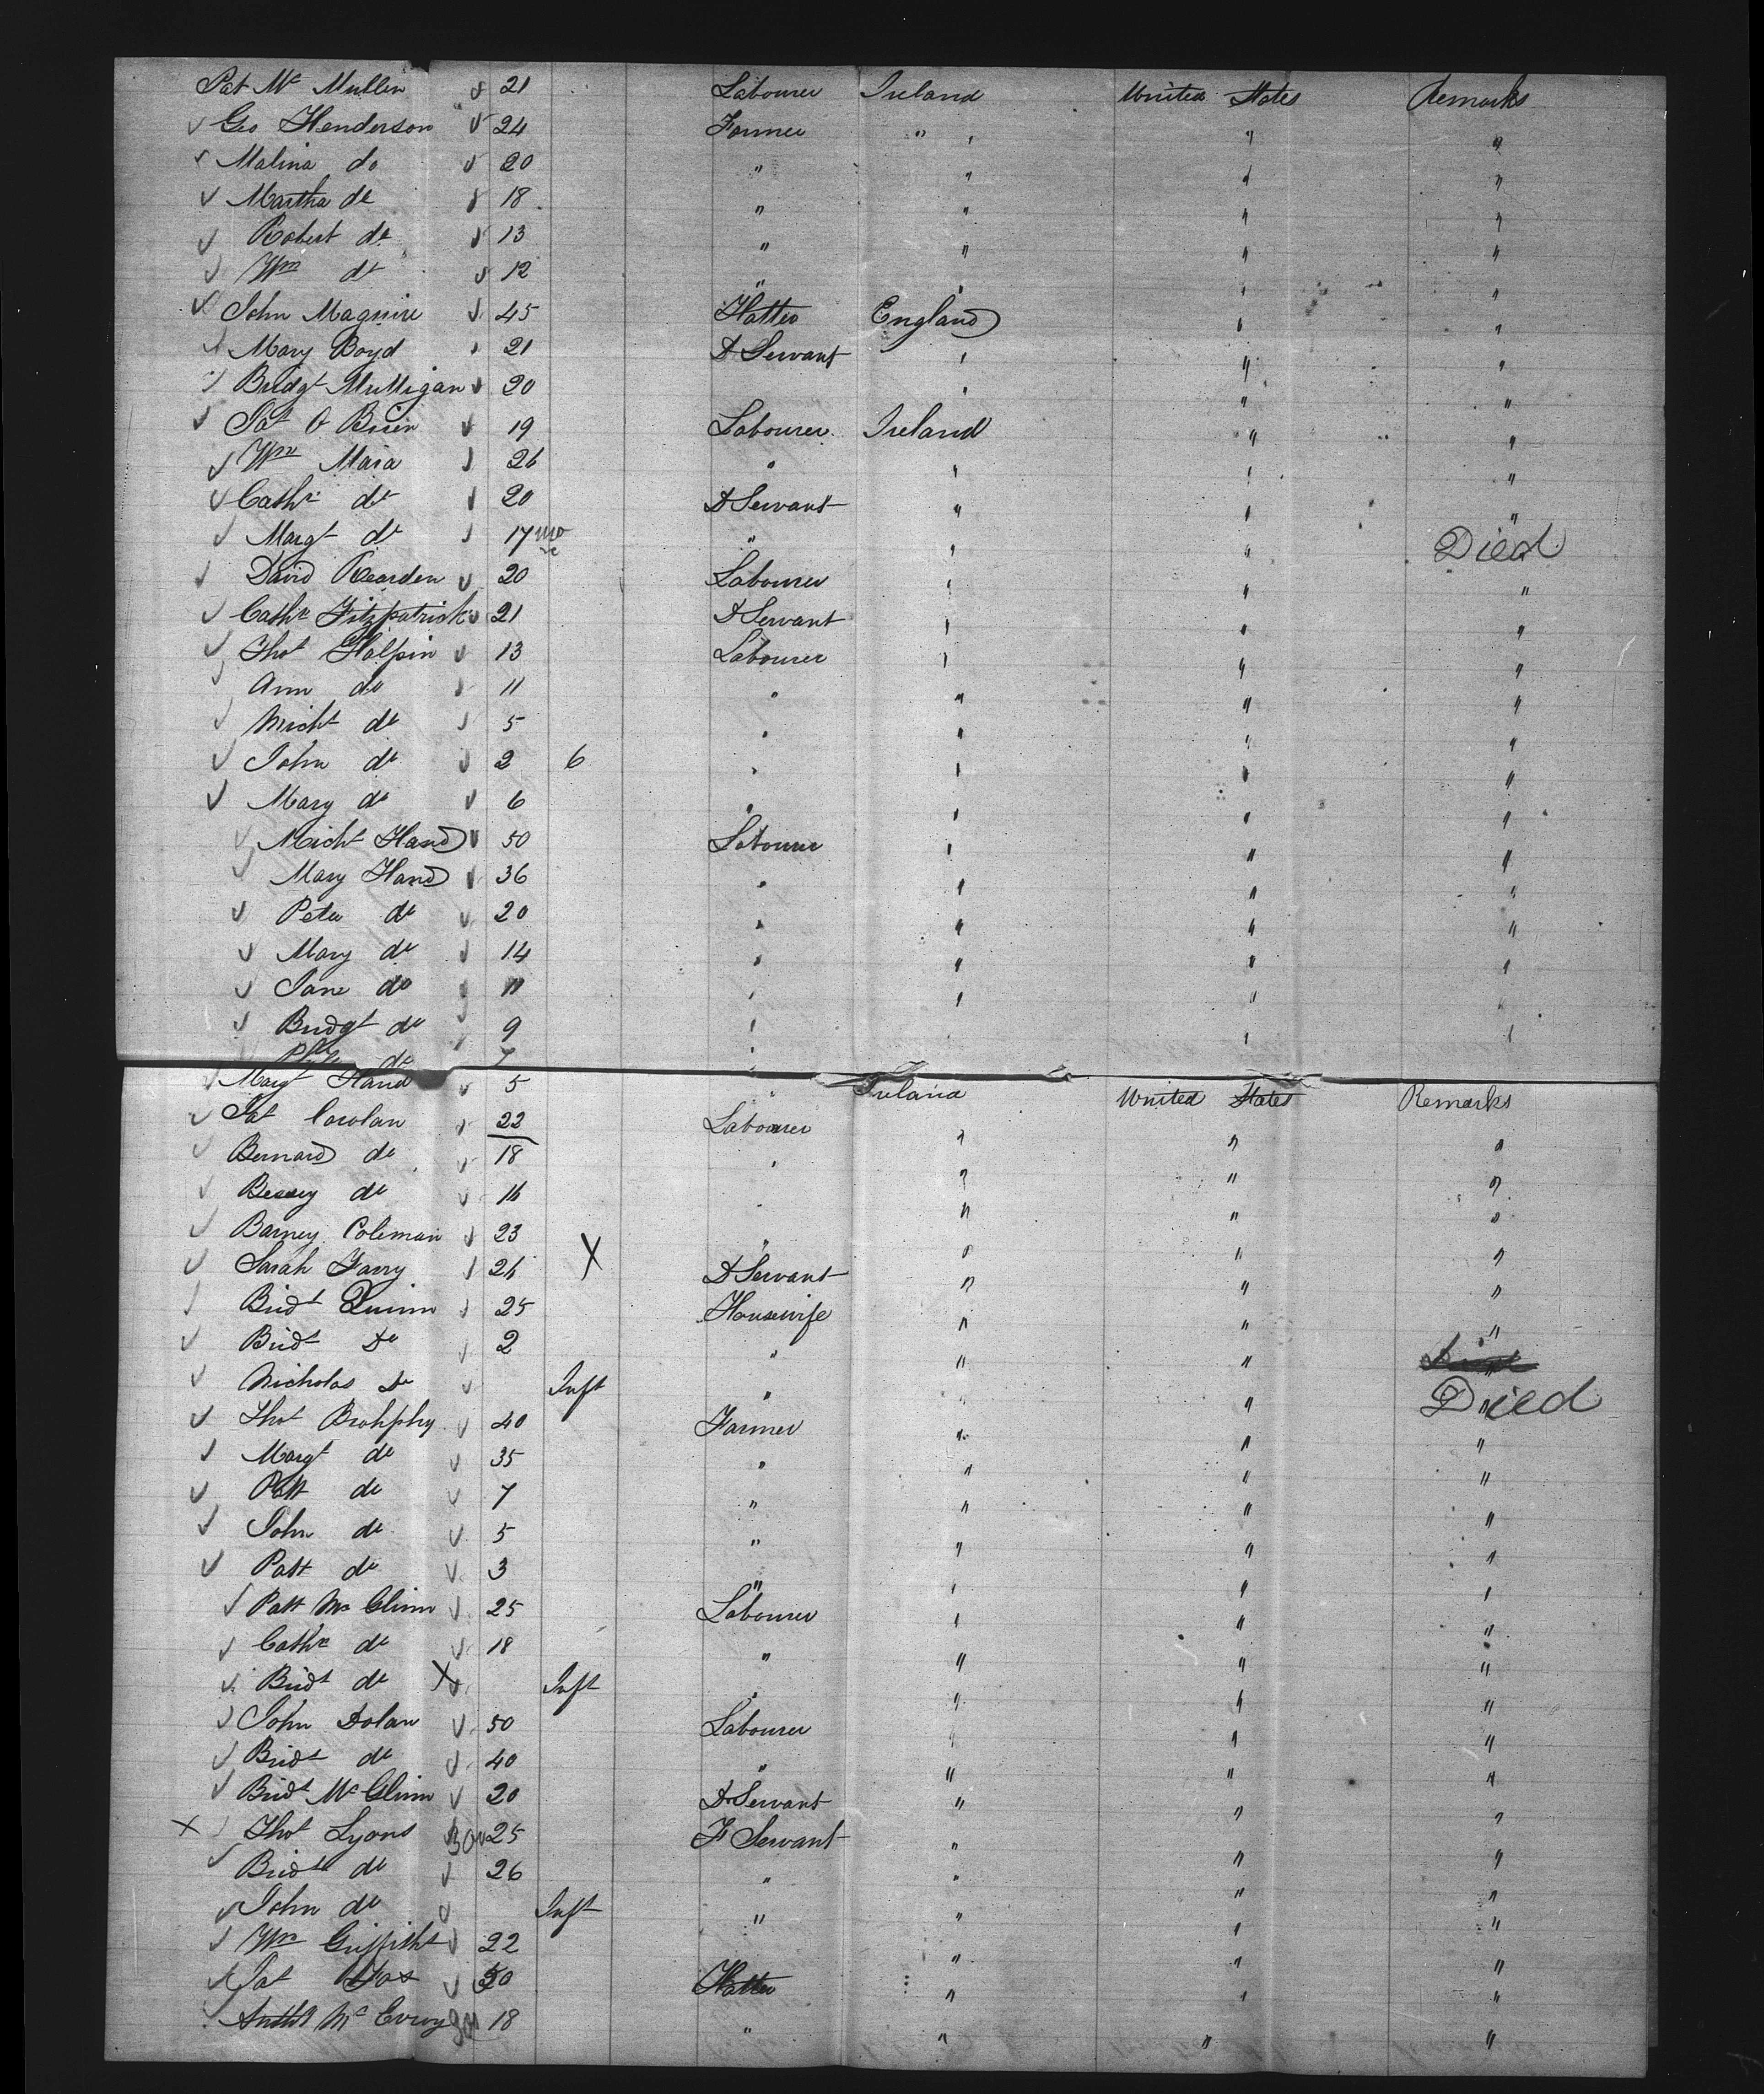 Pat Mc Mullen 21 Labourer Ireland United States Remarks
Geo Henderson 24 Farmer " " "
Malina do 20 " " " "
Martha do 18 " " " "
Robert do 13 " " " "
Wm do 12 " " " "
John Maguire 45 Hatter England " "
Mary Boyd 21 D Servant " " "
Bridgt Mulligan 20 " " "
Pat O Brien 19 Labourer Ireland " "
Wm Mara 26 " " " "
Cathn do 20 D Servant " " "
Margt do 17 mo " " " Died
David Rearden 20 Labourer " " "
Cathn Fitzpatrick 21 D Servant " " "
Thos Halpin 13 Labourer " " "
Ann do 11 " " " "
Michl do 5 " " " "
John do 2 6 " " " "
Mary do 6 " " " "
Michl Hand 50 Labourer " " "
Mary Hand 36 " " " "
Peter do 20 " " " "
Mary do 14 " " " "
Jane do 11 " " "
Bridgt do 9 " " "
do 7
Margt Hand 5 " Ireland United States Remarks
Pat Carolan 22 Labourer " " "
Bernard do 18 " " " "
Bessey do 16 " " " "
Barney Coleman 23 " " " "
Sarah Farry 26 X D Servant " " "
Bridt Quinn 25 Housewife " " "
Bridt Do 2 " " "
Nicholas Do Inft " " " Died
Thos Brohphy 40 Farmer " " "
Margt do 35 " " " "
Patt do 7 " " " "
John do 5 " " " "
Patt do 3 " " " "
Patt Mc Glinn 25 Labourer " " "
Cathn do 18 " " " "
Bridt do X Inft " " " "
John Dolan 50 Labourer " " "
Bridt do 40 " " " "
Bridt Mc Glinn 20 D Servant " " "
X Thos Lyons 25 F Servant " " "
Bridt do 26 " " " "
John do Inft " " " "
Wm Griffiths 22 " " "
Pat 50 Hatter " " "
Mc Evoy 18 " " " "